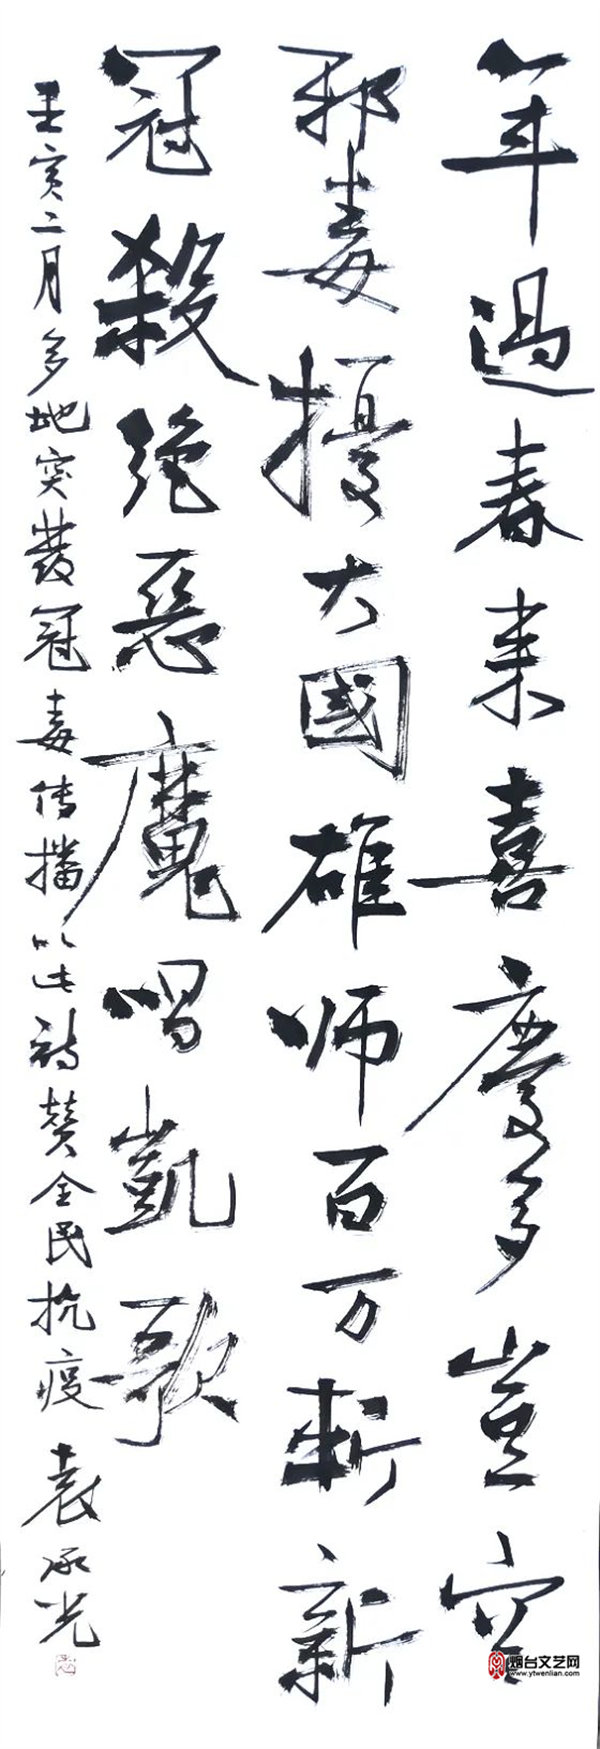 年過春来喜慶多豈容
邪毒擾大國雄师百万斬新
冠殺绝惡魔唱凱歌
壬寅二月多地突發冠毒传播以此诗赞全民抗疫 袁承光
烟台文艺网
www.ytwenlian.com